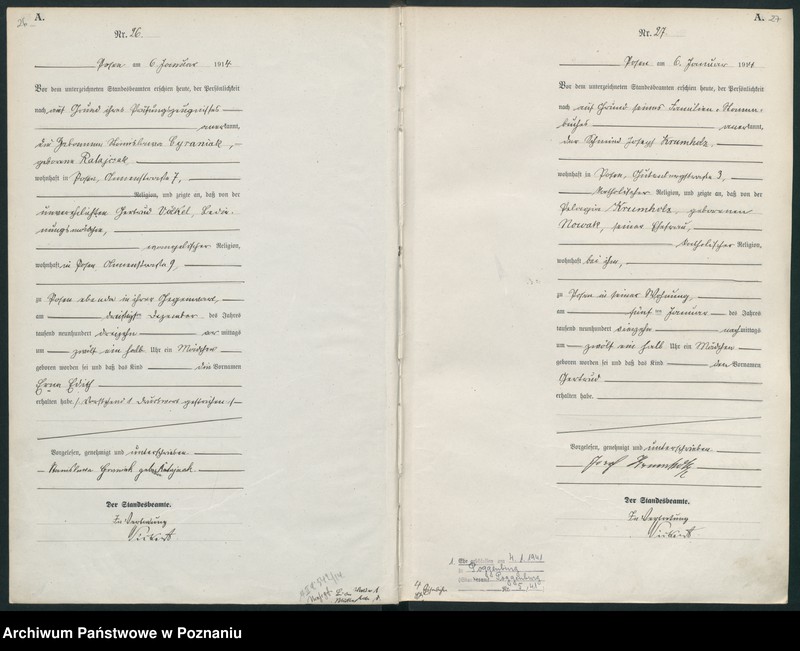 26
A.
Nr. 26.
Posen am 6. Januar 1914
Vor dem unterzeichneten Standesbeamten erschien heute, der Persönlichkeit
nach auf Grund ihres Prüfungszeugnisses
anerkannt,
die Hebamme Stanislawa Cyraniak,
geborene Ratajczak
wohnhaft in Posen,
Religion, und zeigte an, daß von der
unverehelichten Gertrud
evangelischer Religion,
wohnhaft in Posen 9,
zu Posen ebenda in ihrer Gegenwart,
am dreißigsten Dezember des Jahres
tausend neunhundert dreizehn vormittags
um zwölf ein halb Uhr ein Mädchen
geboren worden sei und daß das Kind den Vornamen
Erna Edith
erhalten habe. Vorstehend 1 Druckwort gestrichen.
Vorgelesen, genehmigt und unterschrieben
Stanislawa Cyraniak geb. Ratajczak
Der Standesbeamte.
In Vertretung
A. 27
Nr. 27
Posen am 6. Januar 1914
Vor dem unterzeichneten Standesbeamten erschien heute, der Persönlichkeit
nach auf Grund seines Familien-Stamm-
buches anerkannt,
der Schmied Joseph Krumholz,
wohnhaft in Posen, 3,
katholischer Religion, und zeigte an, daß von der
Pelagia Krumholz, geborenen
Nowak, seiner Ehefrau,
katholischer Religion,
wohnhaft bei ihm,
zu Posen in seiner Wohnung,
am fünften Januar des Jahres
tausend neunhundert vierzehn nachmittags
um zwölf ein halb Uhr ein Mädchen
geboren worden sei und daß das Kind den Vornamen
Gertrud
erhalten habe.
Vorgelesen, genehmigt und unterschrieben
Josef Krumholz
Der Standesbeamte.
In Vertretung
4.1.1941
Archiwum Państwowe w Poznaniu